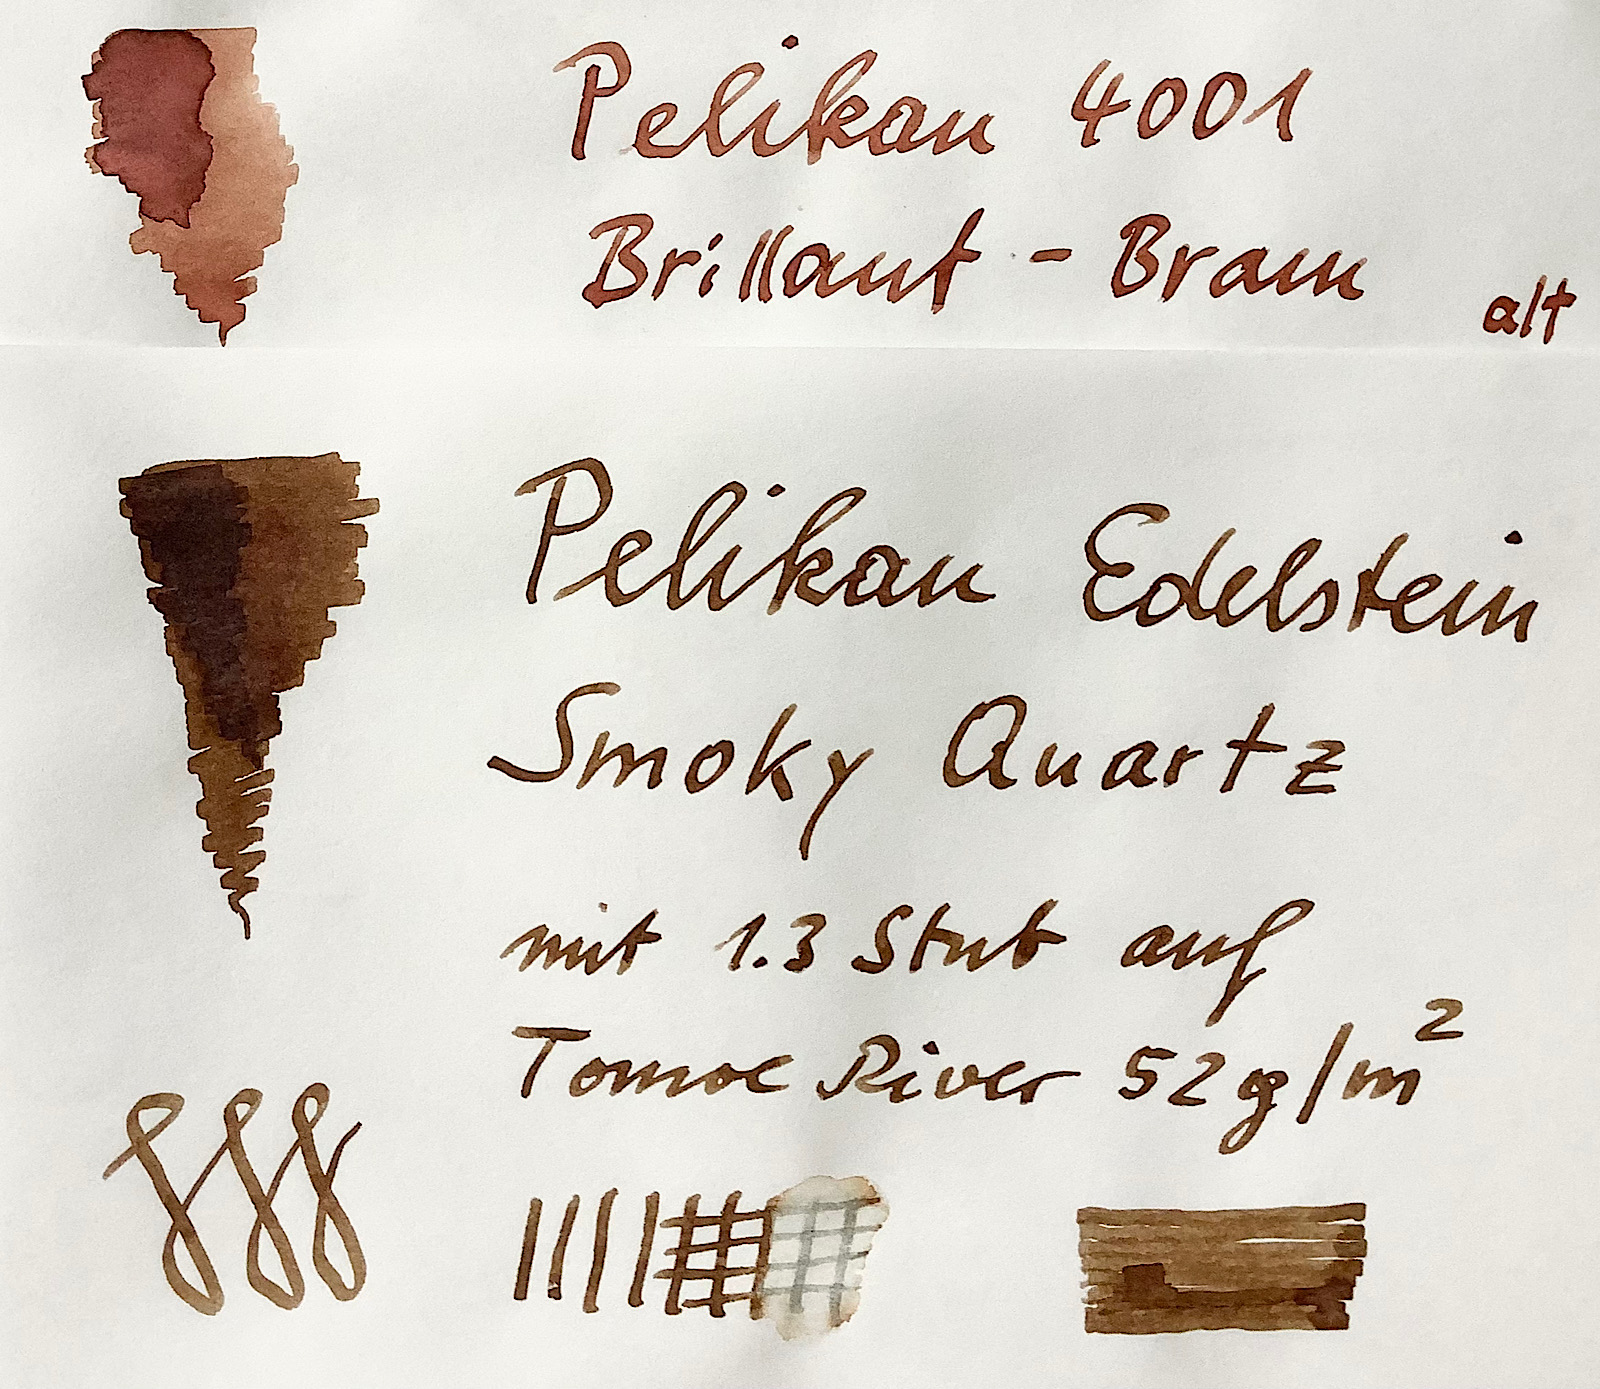 Pelikan 4001
Brillant - Braun
alt
Pelikan Edelstein
Smoky Quartz
mit 1.3 Stub auf
Tomoe River 52 g/m²